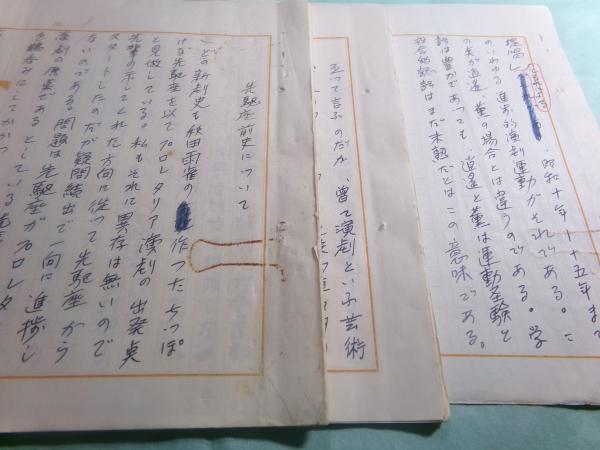 先駆座前史について
どの新劇史も秋田雨雀の
作つたちつぽ
けな先駆座を以てプロレタリア演劇の出発点
と見做している。私もそれに異存は無いので
先輩の示してくれた方向に従つて先駆座から
スタートしたのだが疑問続出で一向に進捗し
ないのである。問題は先駆座がプロレタ
演劇の濫觴であるとしてい
を鵜呑みにしてかかつ
立つて言ふのだが、曾て演劇といふ芸術
提唱し
昭和十年―十五年ま
のいわゆる進歩的演劇運動がそれである。こ
の点が逍遥、薫の場合とは違うのである。学
識は豊かであつても、逍遥と薫は運動経験と
社会的認識はまだ未熟だとはこの意味である。